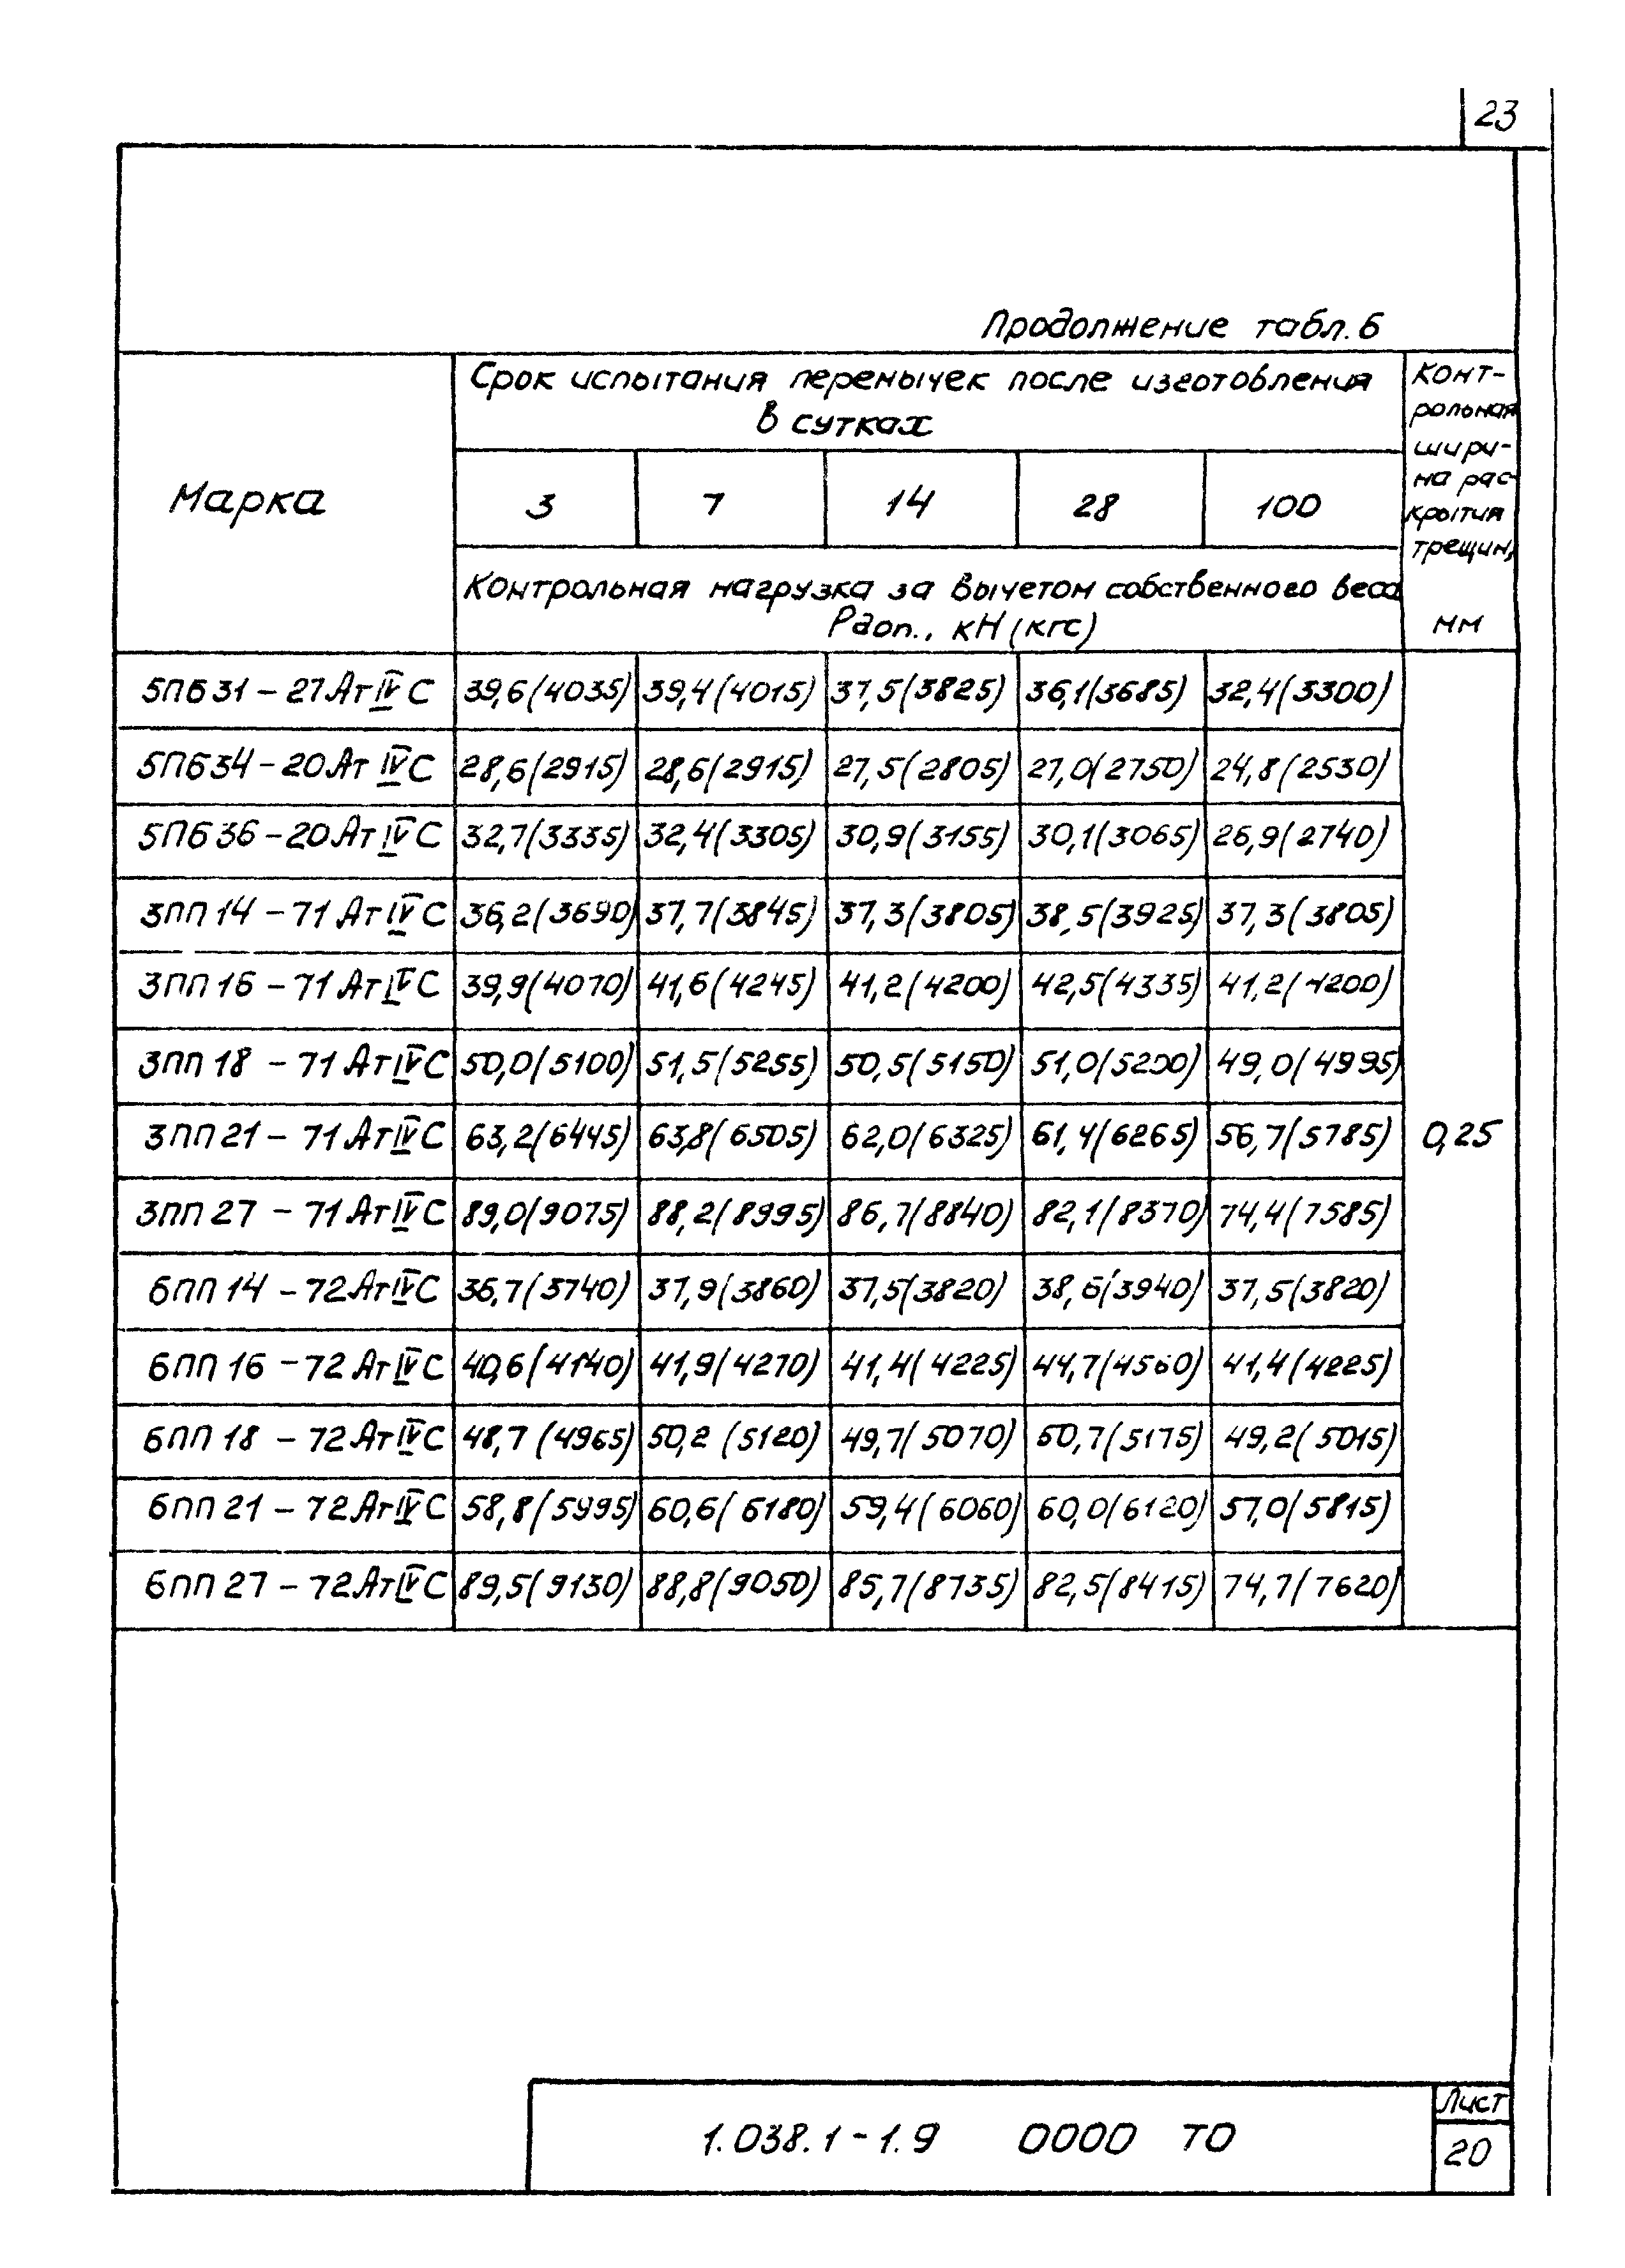 23
Продолжение табл. 6
Марка
Срок испытания перемычек после изготовления
в сутках
3 7 14 28 100
Контрольная нагрузка за вычетом собственного веса
Рдоп., кН (кгс)
Конт-
рольная
шири-
на рас-
крытия
трещин,
мм
5ПБ31-27АтIVС 39,6(4035) 39,4(4015) 37,5(3825) 36,1(3685) 32,4(3300)
5ПБ34-20АтIVС 28,6(2915) 28,6(2915) 27,5(2805) 27,0(2750) 24,8(2530)
5ПБ36-20АтIVС 32,7(3335) 32,4(3305) 30,9(3155) 30,1(3065) 26,9(2740)
3ПП14-71АтIVС 36,2(3690) 37,7(3845) 37,3(3805) 38,5(3925) 37,3(3805)
3ПП16-71АтIVС 39,9(4070) 41,6(4245) 41,2(4200) 42,5(4335) 41,2(4200)
3ПП18-71АтIVС 50,0(5100) 51,5(5255) 50,5(5150) 51,0(5200) 49,0(4995)
3ПП21-71АтIVС 63,2(6445) 63,8(6505) 62,0(6325) 61,4(6265) 56,7(5785) 0,25
3ПП27-71АтIVС 89,0(9075) 88,2(8995) 86,7(8840) 82,1(8370) 74,4(7585)
6ПП14-72АтIVС 36,7(3740) 37,9(3860) 37,5(3820) 38,6(3940) 37,5(3820)
6ПП16-72АтIVС 40,6(4140) 41,9(4270) 41,4(4225) 44,7(4560) 41,4(4225)
6ПП18-72АтIVС 48,7(4965) 50,2(5120) 49,7(5070) 50,7(5175) 49,2(5015)
6ПП21-72АтIVС 58,8(5995) 60,6(6180) 59,4(6060) 60,0(6120) 57,0(5815)
6ПП27-72АтIVС 89,5(9130) 88,8(9050) 85,7(8735) 82,5(8415) 74,7(7620)
1.038.1-1.9 0000 ТО
Лист
20